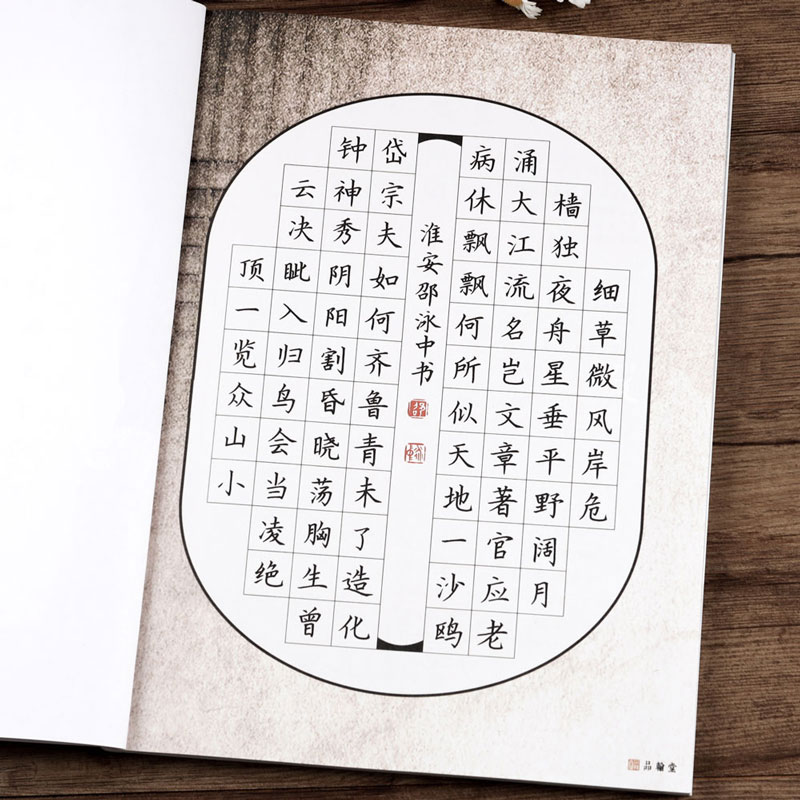 细草微风岸危
樯独夜舟星垂平野阔月
涌大江流名岂文章著官应老
病休飘飘何所似天地一沙鸥
淮安邵泳中书
岱宗夫如何齐鲁青未了造化
钟神秀阴阳割昏晓荡胸生曾
云决眦入归鸟会当凌绝
顶一览众山小
品翰堂